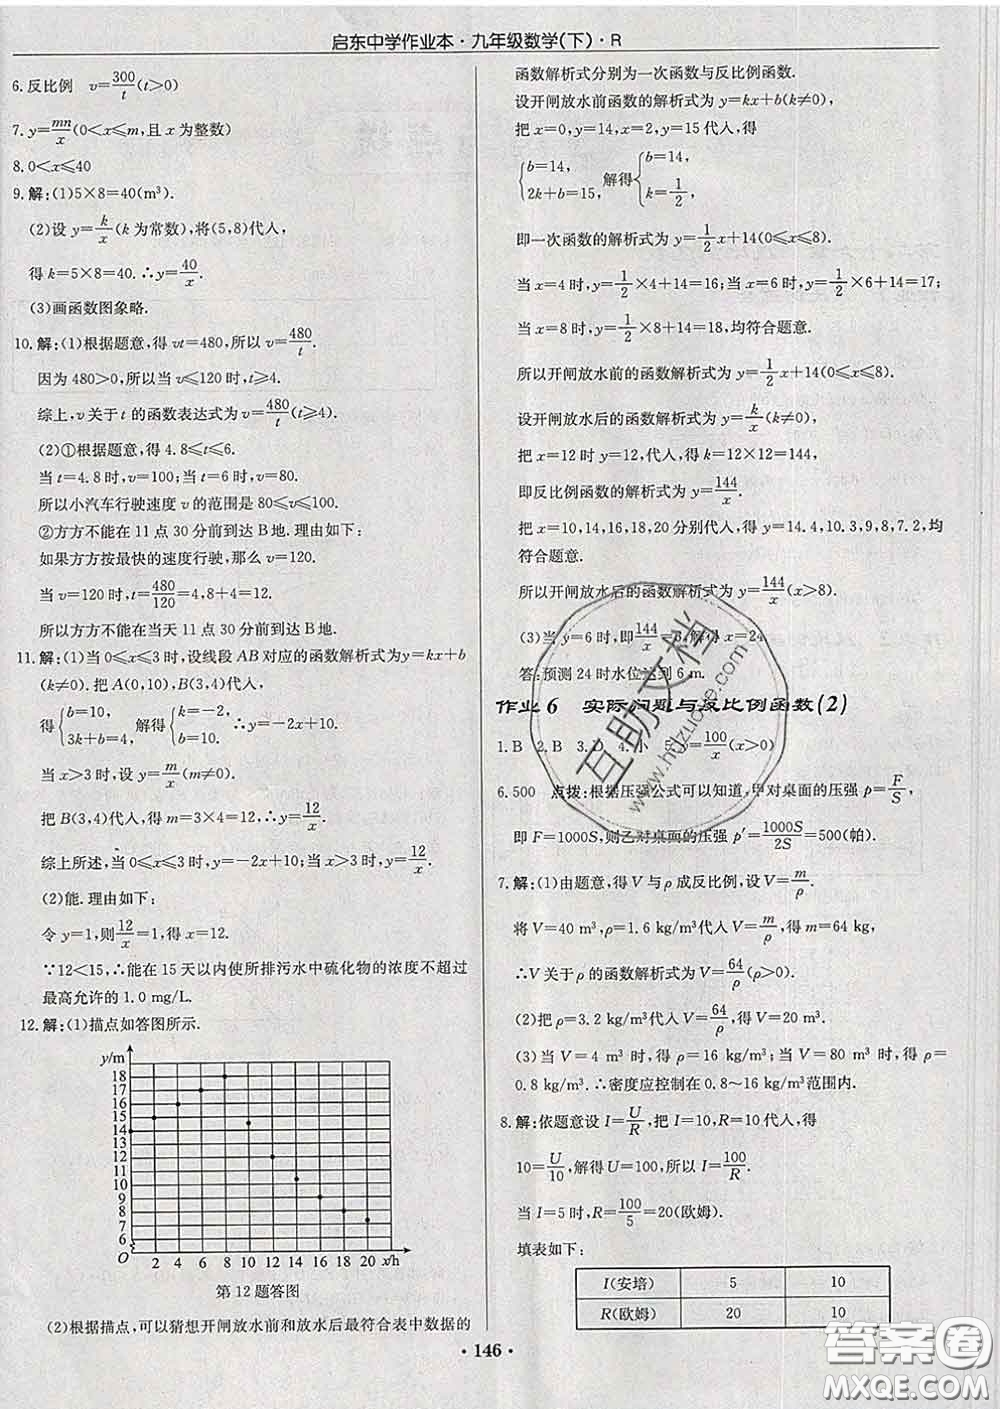 启东中学作业本·九年级数学(下)·R
6.反比例 v=300/t(t>0)
7.y=mn/x(0<x≤m,且x为整数)
8.0<x≤40
9.解:(1)5×8=40(m³).
(2)设y=k/x(k为常数),将(5,8)代入,
得k=5×8=40.∴y=40/x.
(3)画函数图象略.
10.解:(1)根据题意,得vt=480,所以v=480/t.
因为480>0,所以当v≤120时,t≥4.
综上,v关于t的函数表达式为v=480/t(t≥4).
(2)①根据题意,得4.8≤t≤6.
当t=4.8时,v=100;当t=6时,v=80.
所以小汽车行驶速度v的范围是80≤v≤100.
②方方不能在11点30分前到达B地.理由如下:
如果方方按最快的速度行驶,那么v=120.
当v=120时,t=480/120=4,8+4=12.
所以方方不能在当天11点30分前到达B地.
11.解:(1)当0≤x≤3时,设线段AB对应的函数解析式为y=kx+b
(k≠0).把A(0,10),B(3,4)代入,
得{b=10, 3k+b=4, 解得{k=-2, b=10. ∴y=-2x+10.
当x>3时,设y=m/x(m≠0).
把B(3,4)代入,得m=3×4=12,∴y=12/x.
综上所述,当0≤x≤3时,y=-2x+10;当x>3时,y=12/x.
(2)能.理由如下:
令y=1,则12/x=1,得x=12.
∵12<15,∴能在15天以内使所排污水中硫化物的浓度不超过
最高允许的1.0 mg/L.
12.解:(1)描点如答图所示.
y/m
18
17
16
15
14
13
12
11
10
9
8
7
6
O 2 4 6 8 10 12 14 16 18 20 x/h
第12题答图
(2)根据描点,可以猜想开闸放水前和放水后最符合表中数据的
函数解析式分别为一次函数与反比例函数.
设开闸放水前函数的解析式为y=kx+b(k≠0),
把x=0,y=14,x=2,y=15代入,得
{b=14, 2k+b=15, 解得{b=14, k=1/2,
即一次函数的解析式为y=1/2x+14(0≤x≤8).
当x=4时,y=1/2×4+14=16;当x=6时,y=1/2×6+14=17;
当x=8时,y=1/2×8+14=18,均符合题意.
所以开闸放水前的函数解析式为y=1/2x+14(0≤x≤8).
设开闸放水后的函数解析式为y=k/x(k≠0),
把x=12时y=12,代入,得k=12×12=144,
即反比例函数的解析式为y=144/x.
把x=10,14,16,18,20分别代入,得y=14.4,10.3,9,8,7.2,均
符合题意.
所以开闸放水后的函数解析式为y=144/x(x>8).
(3)当y=6时,即144/x=6,解得x=24.
答:预测24时水位达到6 m.
作业6 实际问题与反比例函数(2)
1.B 2.B 3.D 4.小 y=100/x(x>0)
6.500 点拨:根据压强公式可以知道,甲对桌面的压强p=F/S,
即F=1000S,则乙对桌面的压强p′=1000S/2S=500(帕).
7.解:(1)由题意,得V与ρ成反比例,设V=m/ρ.
将V=40 m³,ρ=1.6 kg/m³代入V=m/ρ,得m=64 kg,
∴V关于ρ的函数解析式为V=64/ρ(ρ>0).
(2)把ρ=3.2 kg/m³代入V=64/ρ,得V=20 m³.
(3)当V=4 m³时,得ρ=16 kg/m³;当V=80 m³时,得ρ=
0.8 kg/m³.∴密度应控制在0.8~16 kg/m³范围内.
8.解:依题意设I=U/R,把I=10,R=10代入,得
10=U/10,解得U=100,所以I=100/R.
当I=5时,R=100/5=20(欧姆).
填表如下:
I(安培) 5 10
R(欧姆) 20 10
·146·
互助文档
www.hdzuoye.com
答案圈
MXQE.COM